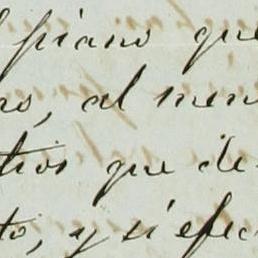 piano que
ro, al men
tros que de
to, y si efec